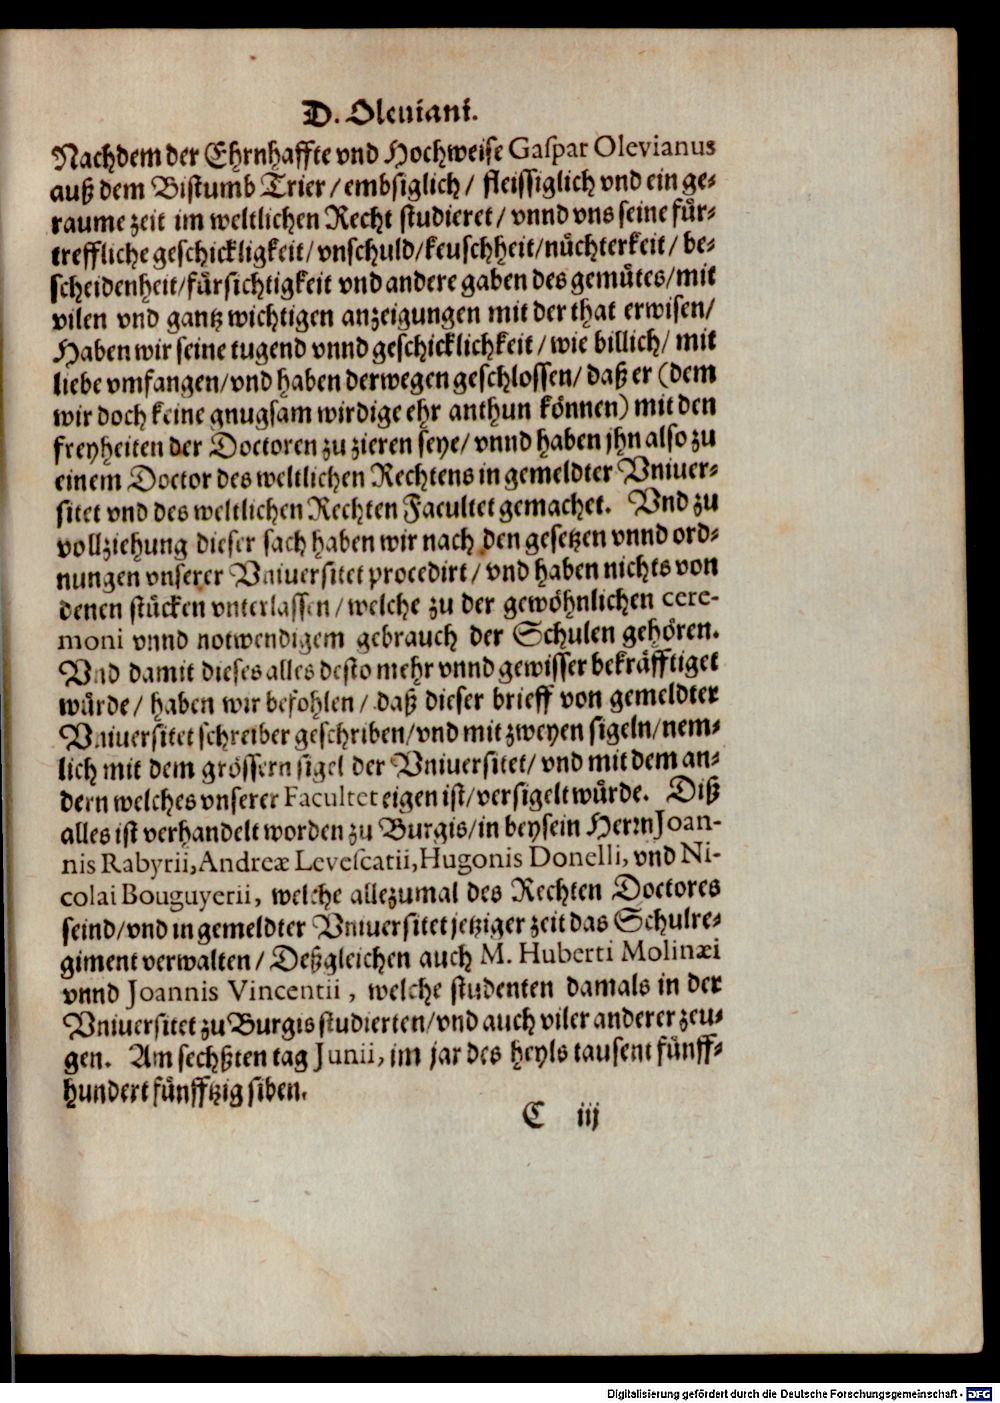 D. Oleuiani.
Nachdem der Ehrnhaffte vnd Hochweise Gaspar Olevianus
auß dem Bistumb Trier / embsiglich / fleissiglich vnd ein ge-
raume zeit im weltlichen Recht studieret / vnnd vns seine für-
treffliche geschickligkeit / vnschuld / keuschheit / nüchterkeit / be-
scheidenheit / fürsichtigkeit vnd andere gaben des gemütes / mit
vilen vnd gantz wichtigen anzeigungen mit der that erwisen /
Haben wir seine tugend vnnd geschicklichkeit / wie billich / mit
liebe vmfangen / vnd haben derwegen geschlossen / daß er (dem
wir doch keine gnugsam wirdige ehr anthun können) mit den
freyheiten der Doctoren zu zieren seye / vnnd haben jhn also zu
einem Doctor des weltlichen Rechtens in gemeldter Vniuer-
sitet vnd des weltlichen Rechten Facultet gemachet. Vnd zu
vollziehung dieser sach haben wir nach den gesetzen vnnd ord-
nungen vnserer Vniuersitet procedirt / vnd haben nichts von
denen stücken vnterlassen / welche zu der gewöhnlichen cere-
moni vnnd notwendigem gebrauch der Schulen gehören.
Vnd damit dieses alles desto mehr vnnd gewisser bekräfftiget
würde / haben wir befohlen / daß dieser brieff von gemeldter
Vniuersitet schreiber geschriben / vnd mit zweyen sigeln / nem-
lich mit dem grössern sigel der Vniuersitet / vnd mit dem an-
dern welches vnserer Facultet eigen ist / versigelt würde. Diß
alles ist verhandelt worden zu Burgis / in beysein Herrn Joan-
nis Rabyrii, Andreæ Levescatii, Hugonis Donelli, vnd Ni-
colai Bouguyerii, welche allezumal des Rechten Doctores
seind / vnd in gemeldter Vniuersitet jetziger zeit das Schulre-
giment verwalten / Deßgleichen auch M. Huberti Molinæi
vnnd Joannis Vincentii, welche studenten damals in der
Vniuersitet zu Burgis studierten / vnd auch viler anderer zeu-
gen. Am sechßten tag Junii, im jar des heyls tausent fünff-
hundert fünfftzig siben.
C iij
Digitalisierung gefördert durch die Deutsche Forschungsgemeinschaft - DFG